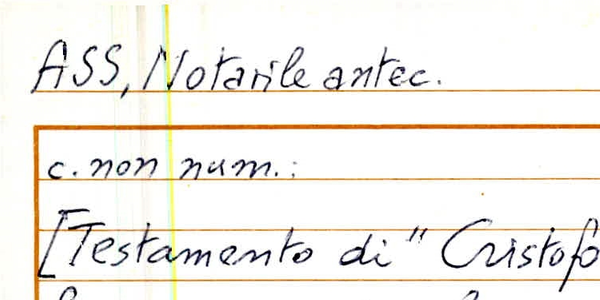 ASS, Notarile antec.
c. non num.:
[Testamento di" Cristofo